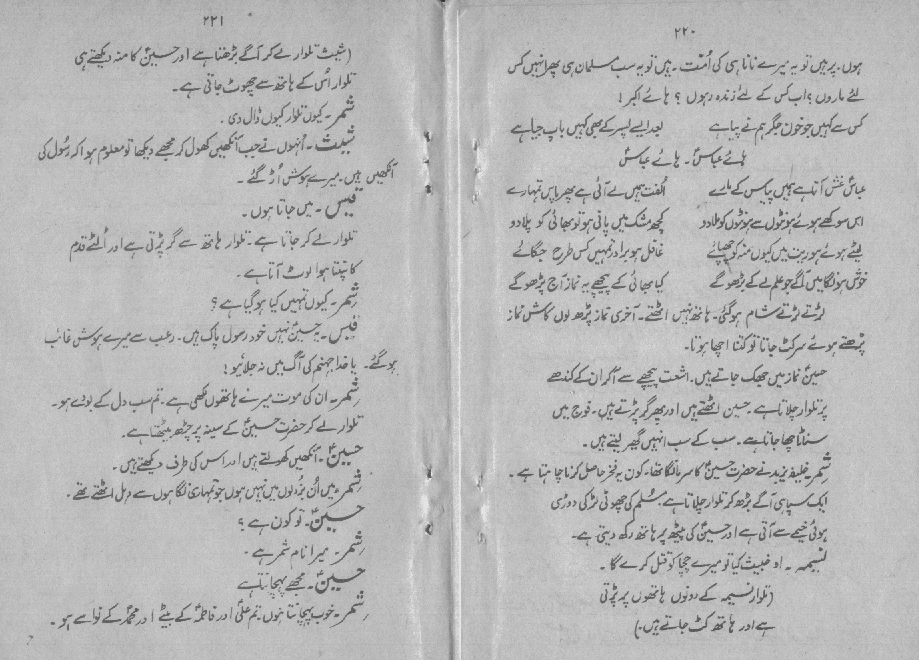 ۲۲۰
ہوں۔ پر ہیں تو یہ میرے نانا ہی کی اُمّت۔ ہیں تو یہ سب مسلمان ہی پھر انہیں کس
لئے ماروں؟ اب کس کے لئے زندہ رہوں؟ ہائے اکبر!
کس سے کہیں جو خون جگر ہم نے پیا ہے بعد ایسے پسر کے بھی کہیں باپ جیا ہے
ہائے عباسؑ۔ ہائے عباسؑ
عباسؑ غش آتا ہے ہمیں پیاس کے مارے الفت ہمیں لے آئی ہے پھر پاس تمہارے
اس سوکھے ہوئے ہونٹوں سے ہونٹوں کو ملا دو کچھ مشک میں پانی ہو تو بھائی کو پلا دو
لیٹے ہوئے ہو ریت میں کیوں منہ کو چھپائے غافل ہو برادر تمہیں کس طرح جگائے
خوش ہونگا میں آگے جو علم لے کے بڑھو گے کیا بھائی کے پیچھے یہ نماز آج پڑھو گے
لڑتے لڑتے شام ہو گئی۔ ہاتھ نہیں اٹھتے۔ آخری نماز پڑھ لوں کاش نماز
پڑھتے ہوئے سر کٹ جاتا تو کتنا اچھا ہوتا۔
حسینؑ نماز میں جھک جاتے ہیں۔ اشعت پیچھے سے آکر ان کے کندھے
پر تلوار چلاتا ہے۔ حسین اٹھتے ہیں اور پھر گر پڑتے ہیں۔ فوج میں
سناٹا چھا جاتا ہے۔ سب کے سب انہیں گھیر لیتے ہیں۔
شمر۔ خلیفہ یزید نے حضرت حسینؑ کا سر مانگا تھا۔ کون یہ فخر حاصل کرنا چاہتا ہے۔
ایک سپاہی آگے بڑھ کر تلوار چلاتا ہے۔ مسلم کی چھوٹی لڑکی دوڑی
ہوئی خیمے سے آتی ہے اور حسینؑ کی پیٹھ پر ہاتھ رکھ دیتی ہے۔
نسیمہ۔ او خبیث کیا تو میرے چچا کو قتل کرے گا۔
(تلوار نسیمہ کے دونوں ہاتھوں پر پڑتی
ہے اور ہاتھ کٹ جاتے ہیں۔)
۲۲۱
(شیث تلوار لے کر آگے بڑھتا ہے اور حسینؑ کا منہ دیکھتے ہی
تلوار اُس کے ہاتھ سے چھوٹ جاتی ہے۔
شمر۔ کیوں تلوار کیوں ڈال دی۔
شیث۔ اُنہوں نے جب آنکھیں کھول کر مجھے دیکھا تو معلوم ہوا کہ رسُول کی
آنکھیں ہیں۔ میرے ہوش اُڑ گئے۔
قیس۔ میں جاتا ہوں۔
تلوار لے کر جاتا ہے۔ تلوار ہاتھ سے گر پڑتی ہے اور اُلٹے قدم
کانپتا ہوا لوٹ آتا ہے۔
شمر۔ کیوں تمہیں کیا ہو گیا ہے؟
قیس۔ یہ حسینؑ نہیں خود رسول پاک ہیں۔ رعب سے میرے ہوش غائب
ہو گئے۔ یا خدا جہنم کی آگ میں نہ جلائیو!
شمر۔ ان کی موت میرے ہاتھوں لکھی ہے۔ تم سب دل کے بودے ہو۔
تلوار لے کر حضرت حسینؑ کے سینہ پر چڑھ بیٹھتا ہے۔
حسینؑ۔ آنکھیں کھولتے ہیں اور اس کی طرف دیکھتے ہیں۔
شمر۔ میں اُن بزدلوں میں نہیں ہوں جو تمہاری نگاہوں سے دہل اٹھتے تھے۔
حسینؑ۔ تو کون ہے؟
شمر۔ میرا نام شمر ہے۔
حسینؑ۔ مجھے پہچانتا ہے
شمر۔ خوب پہچانتا ہوں۔ تم علیؑ اور فاطمہؑ کے بیٹے اور محمدؐ کے نواسے ہو۔